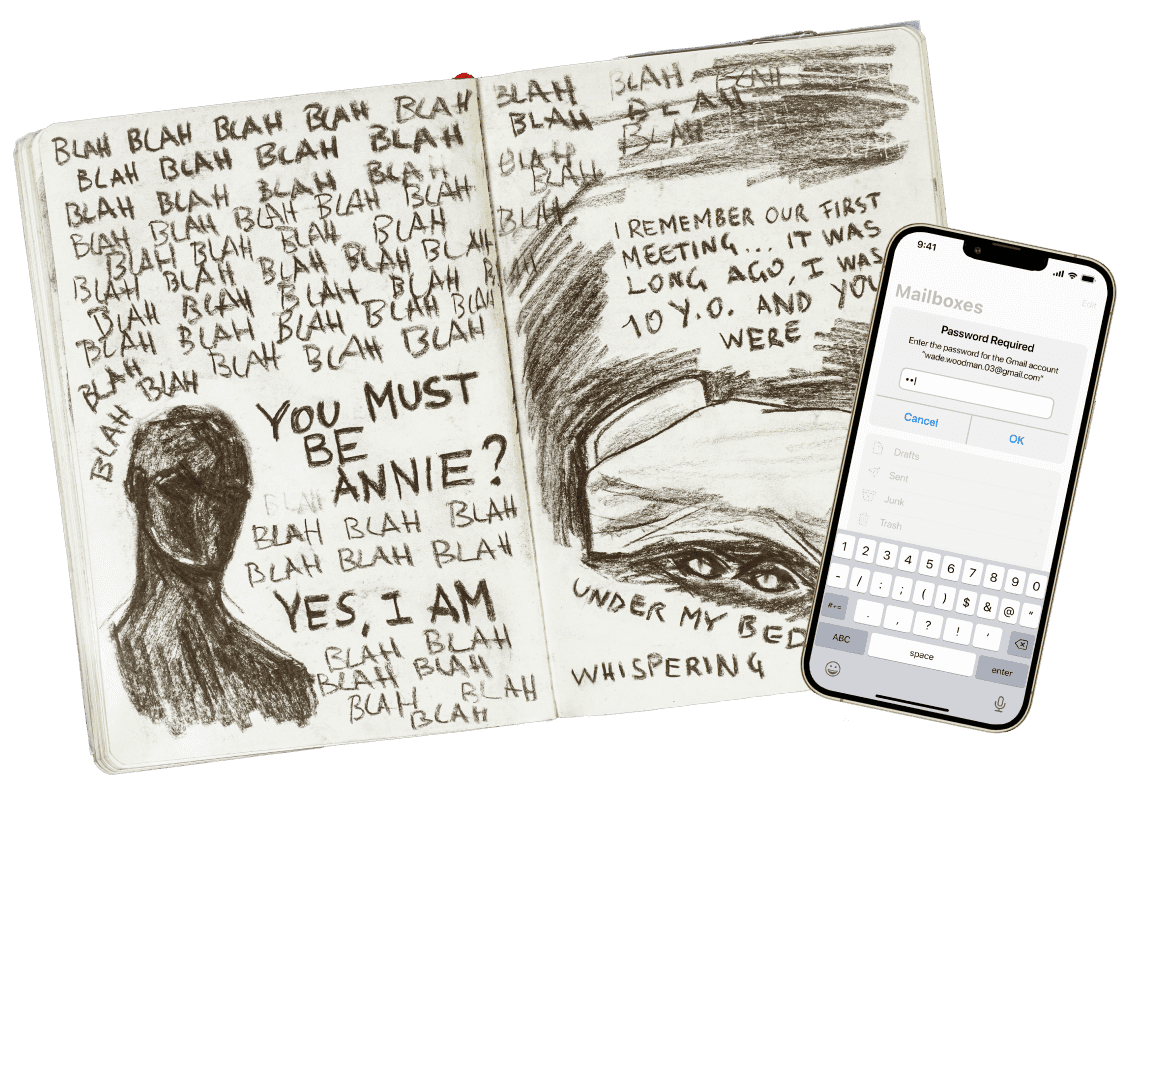 BLAH BLAH BLAH BLAH BLAH
BLAH BLAH BLAH BLAH
BLAH BLAH BLAH BLAH
BLAH BLAH BLAH BLAH BLAH
BLAH BLAH BLAH BLAH BLAH
BLAH BLAH BLAH BLAH BLAH
BLAH BLAH BLAH BLAH
BLAH BLAH BLAH BLAH BLAH
BLAH BLAH BLAH
BLAH BLAH
BLAH
YOU MUST
BE
ANNIE?
BLAH
BLAH BLAH BLAH
BLAH BLAH BLAH
YES, I AM
BLAH BLAH
BLAH BLAH
BLAH BLAH
BLAH
BLAH BLAH BLAH
BLAH BLAH
BLAH
BLAH
BLAH
BLAH
I REMEMBER OUR FIRST
MEETING... IT WAS
LONG AGO, I WAS
10 Y.O. AND YOU
WERE
UNDER MY BED
WHISPERING
9:41
Edit
Mailboxes
Password Required
Enter the password for the Gmail account
"wade.woodman.03@gmail.com"
••
Cancel OK
Drafts
Sent
Junk
Trash
1 2 3 4 5 6 7 8 9 0
- / : ; ( ) $ & @ "
#+= . , ? ! '
ABC space enter